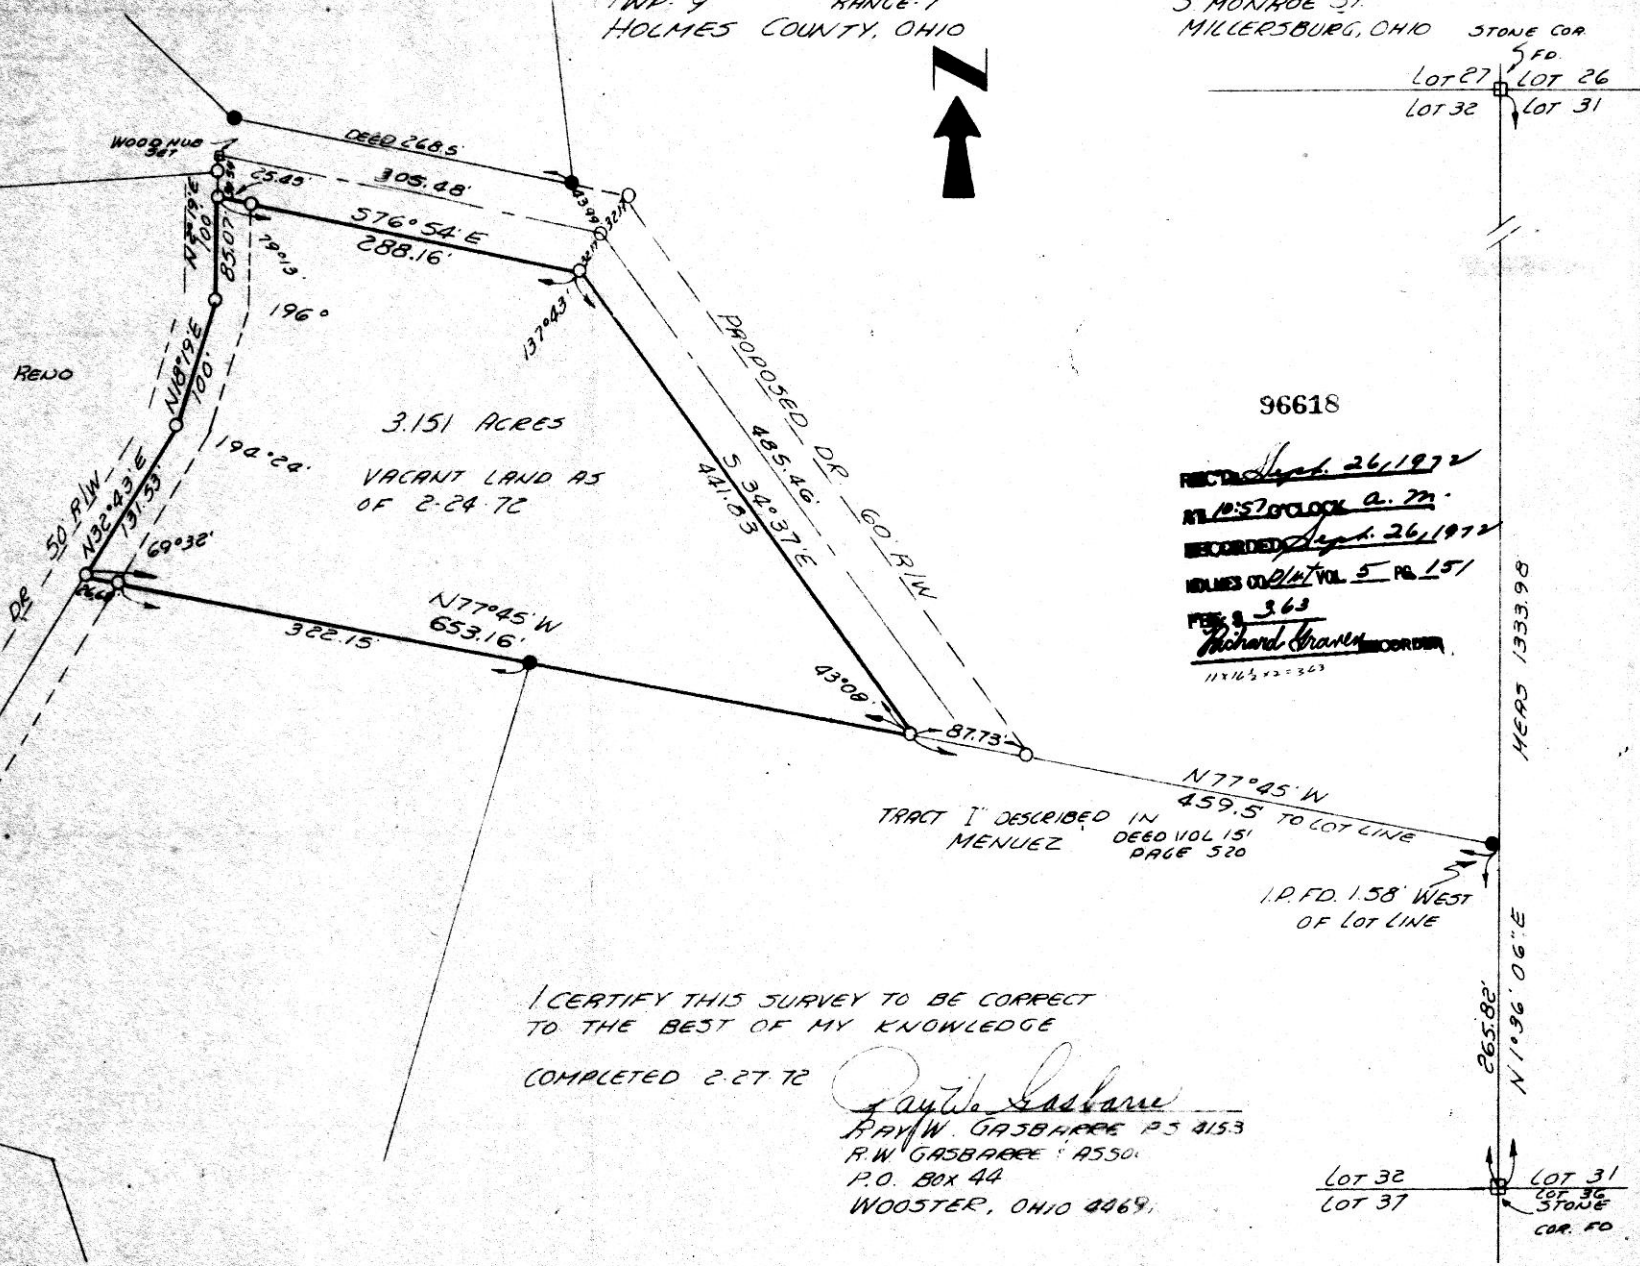 TWP. 9 RANGE. 7
HOLMES COUNTY, OHIO
S. MONROE ST.
MILLERSBURG, OHIO
STONE COR.
FD.
LOT 27 LOT 26
LOT 32 LOT 31
N
WOOD HUB
SET
DEED 268.5'
25.45'
305.48'
S76°54'E
288.16'
43.99
32.17
N2°19'E
100'
85.07'
79°13'
196°
137°43'
N18°19'E
100'
RENO
3.151 ACRES
VACANT LAND AS
OF 2-24-72
194°24'
50 R/W
DR
N32°43'E
131.53'
69°32'
26.68
N77°45'W
653.16'
322.15'
PROPOSED DR 60' R/W
485.46'
S 34°37'E
441.83
43°08'
87.73'
N77°45'W
459.5 TO LOT LINE
TRACT I DESCRIBED IN
MENUEZ DEED VOL 151
PAGE 520
96618
REC'D Sept. 26, 1972
AT 10:57 O'CLOCK a. m.
RECORDED Sept. 26, 1972
HOLMES CO Plat VOL. 5 PG. 151
FEE $ 3.63
Richard Graven RECORDER
11x16½x2=363
MEAS 1333.98
I.P. FD. 1.58' WEST
OF LOT LINE
265.82'
N 1°36'06"E
I CERTIFY THIS SURVEY TO BE CORRECT
TO THE BEST OF MY KNOWLEDGE
COMPLETED 2-27-72
Ray W. Gasbarre
RAY W. GASBARRE PS 4153
R.W. GASBARRE & ASSO.
P.O. BOX 44
WOOSTER, OHIO 4469
LOT 32 LOT 31
LOT 37 LOT 36
STONE
COR. FD